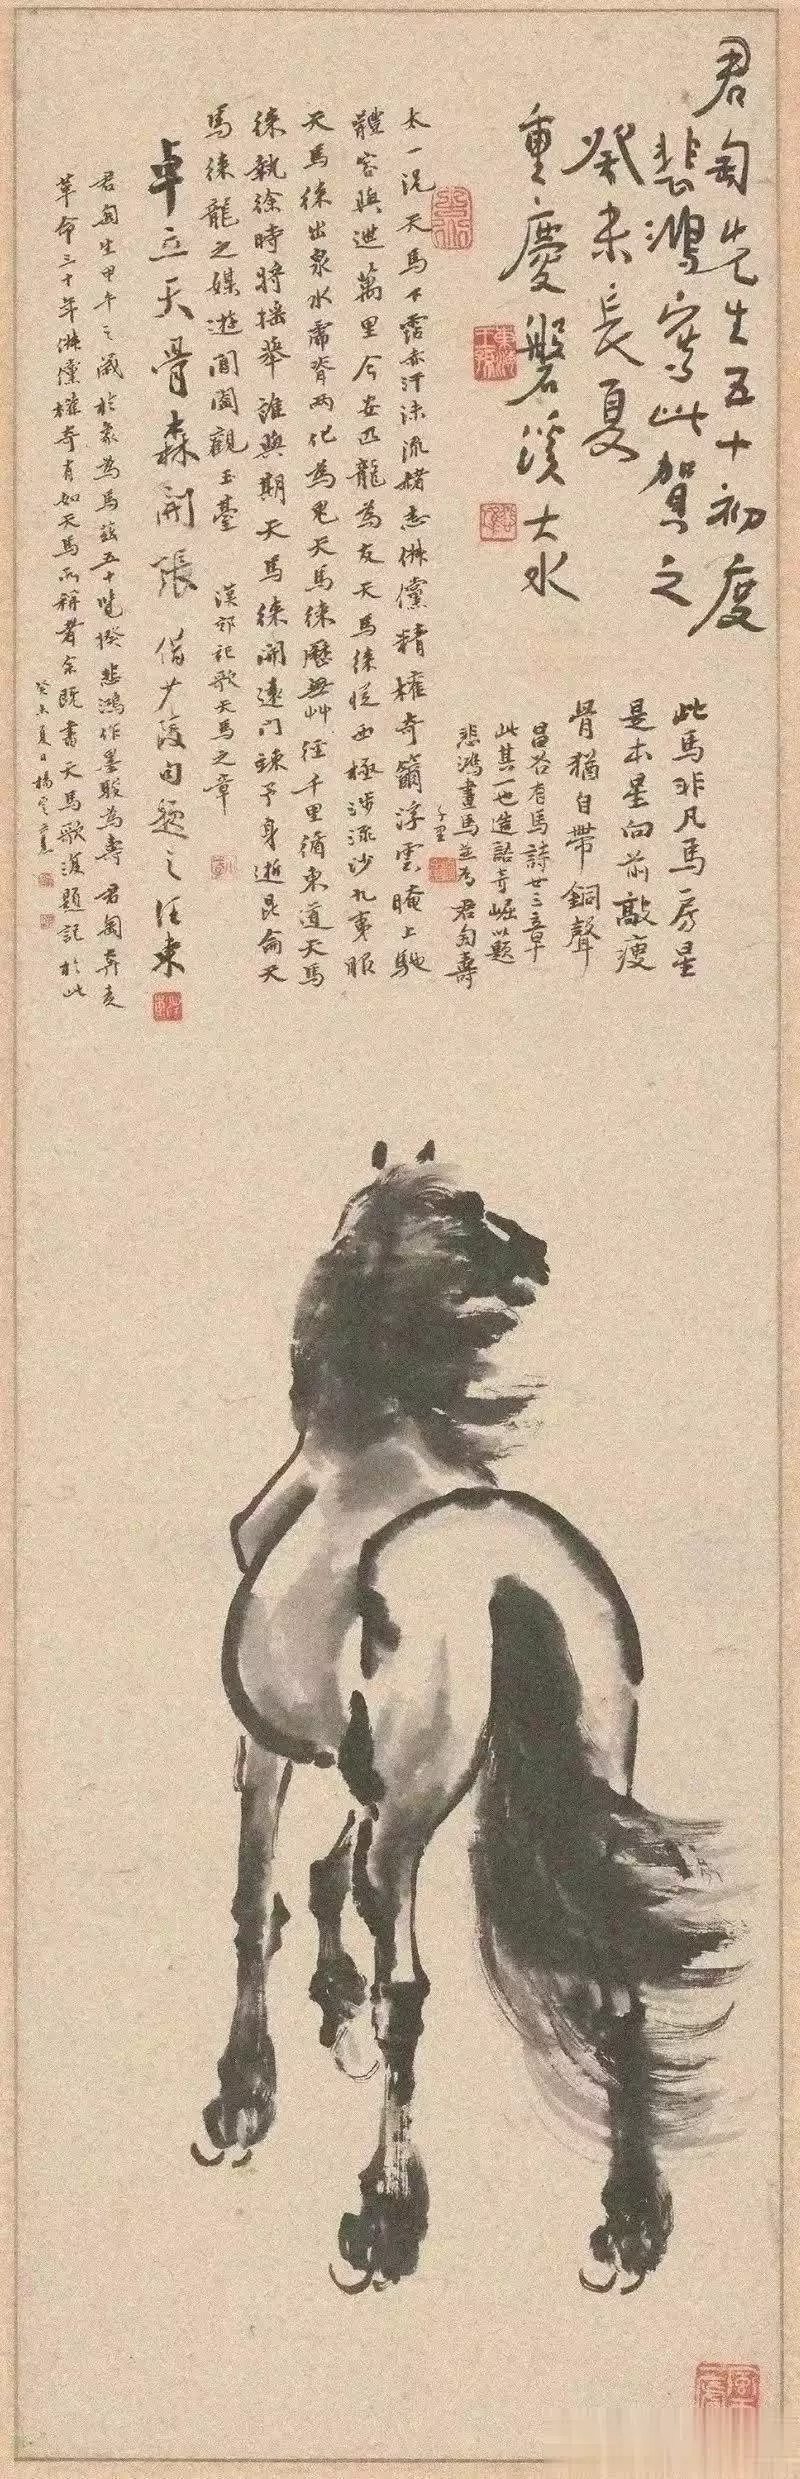 君匋先生五十初度
悲鴻寫此賀之
癸未長夏
重慶磐溪大水
此馬非凡馬房星
是本星向前敲瘦
骨猶自帶銅聲
昌谷有馬詩廿三章
此其一也造語奇崛以題
悲鴻畫馬並為君匋壽
太一況天馬下霑赤汗沫流赭志俶儻精權奇籋浮雲晻上馳
體容與迣萬里今安匹龍為友天馬徠從西極涉流沙九夷服
天馬徠出泉水虎脊兩化為鬼天馬徠歷無艸徑千里循東道天馬
徠執徐時將搖舉誰與期天馬徠開遠門竦予身逝昆侖天
馬徠龍之媒游閶闔觀玉臺 漢郊祀歌天馬之章
卓立天骨森開張 借少陵句題之汪東
君匋生甲午之歲於象為馬茲五十覽揆悲鴻作墨駿為壽君匋奔走
革命三十年俶儻權奇有如天馬所稱者余既書天馬歌復題記於此
癸未夏日